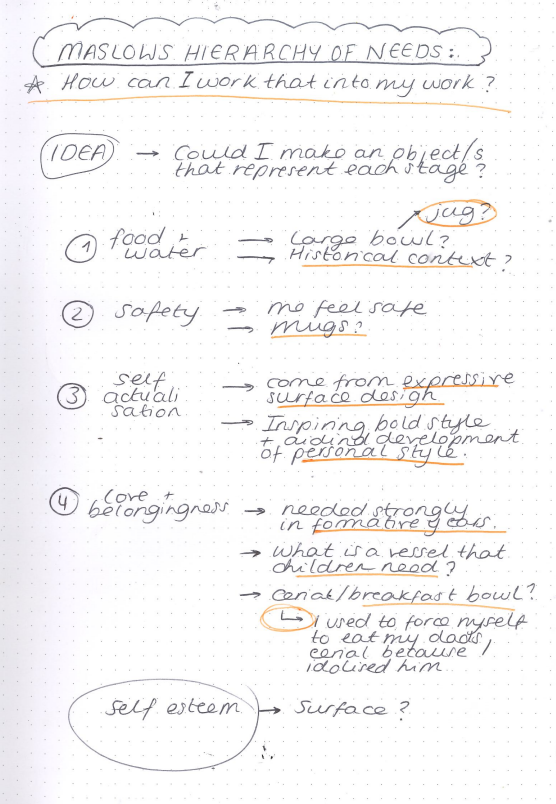 MASLOWS HIERARCHY OF NEEDS:.
* How can I work that into my work?
IDEA → Could I make an object/s
that represent each stage?
jug?
① food + → Large bowl?
water → Historical context?
② Safety → me feel safe
→ mugs?
③ self
actuali
sation
→ come from expressive
surface design
→ Inspiring bold style
+ aidind development
of personal style.
④ Love +
belongingness → needed strongly
in formative years.
→ What is a vessel that
children need?
→ cerial/breakfast bowl?
↳ I used to force myself
to eat my dads,
cerial because I
idolised him
self esteem → Surface?